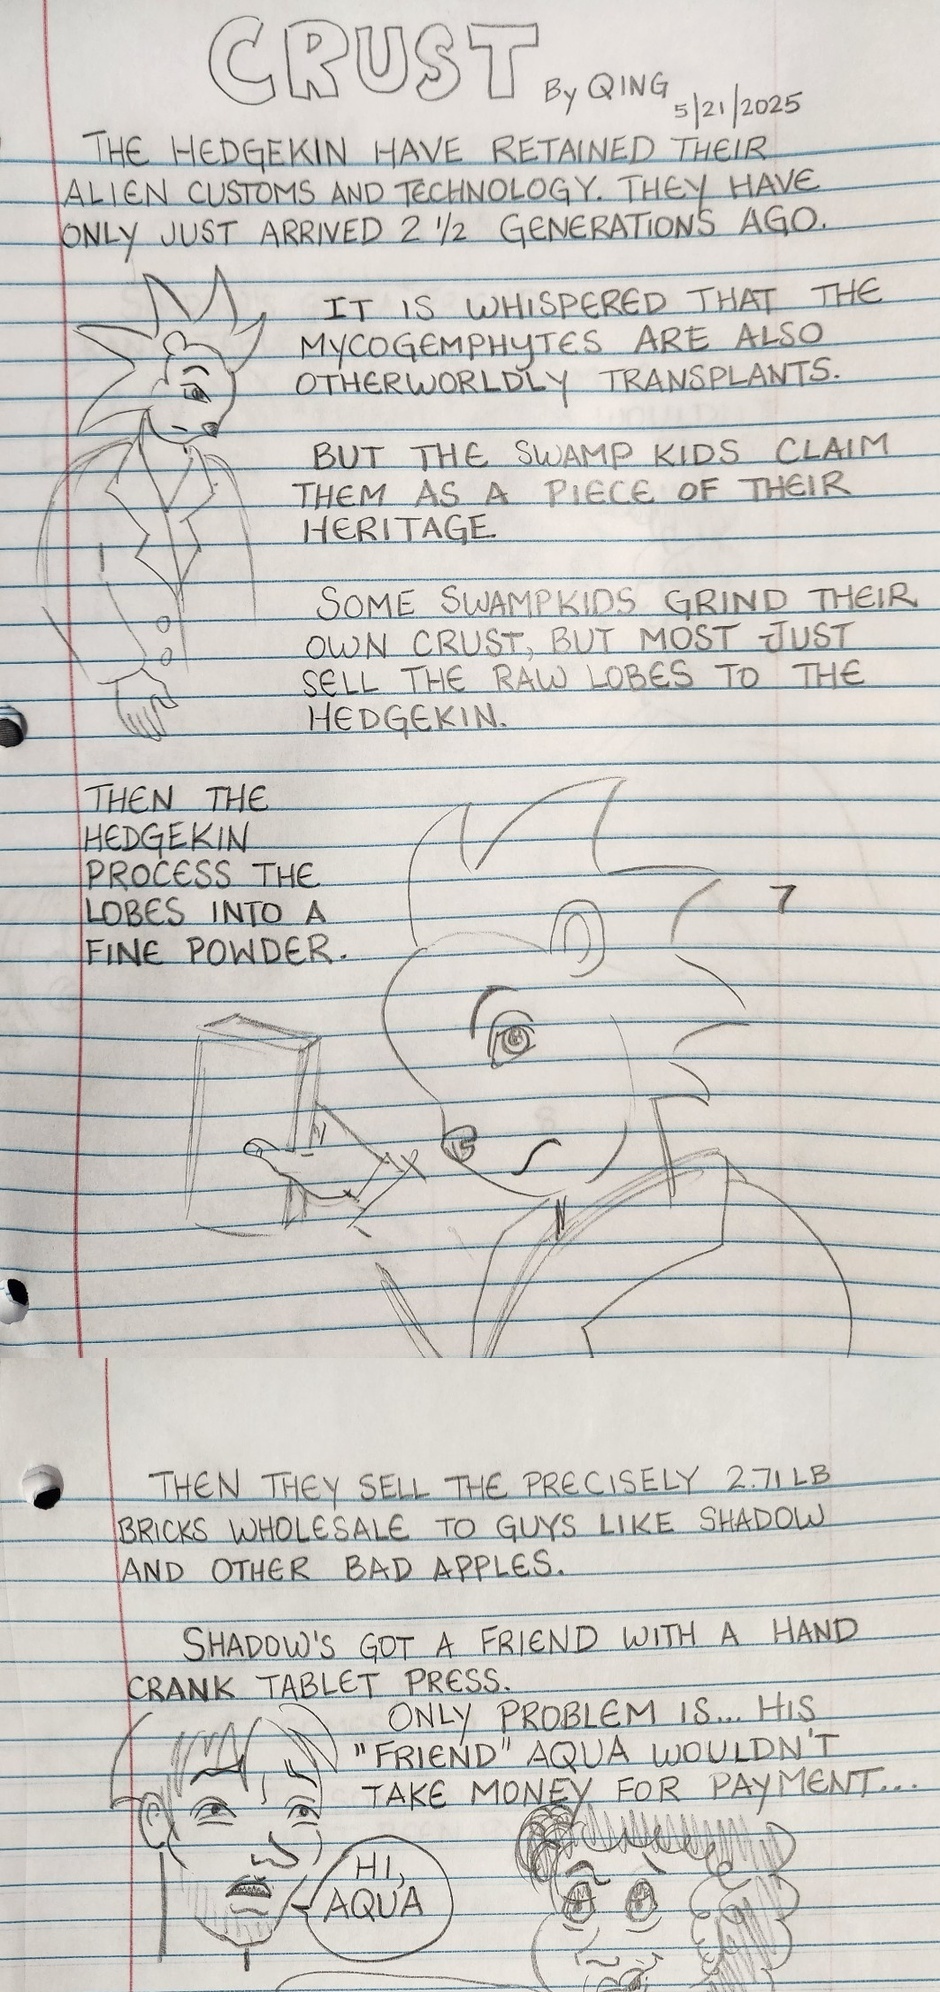 CRUST
By QING
5/21/2025
THE HEDGEKIN HAVE RETAINED THEIR
ALIEN CUSTOMS AND TECHNOLOGY. THEY HAVE
ONLY JUST ARRIVED 2 1/2 GENERATIONS AGO.
IT IS WHISPERED THAT THE
MYCOGEMPHYTES ARE ALSO
OTHERWORLDLY TRANSPLANTS.
BUT THE SWAMP KIDS CLAIM
THEM AS A PIECE OF THEIR
HERITAGE.
SOME SWAMPKIDS GRIND THEIR
OWN CRUST, BUT MOST JUST
SELL THE RAW LOBES TO THE
HEDGEKIN.
THEN THE
HEDGEKIN
PROCESS THE
LOBES INTO A
FINE POWDER.
THEN THEY SELL THE PRECISELY 2.71 LB
BRICKS WHOLESALE TO GUYS LIKE SHADOW
AND OTHER BAD APPLES.
SHADOW'S GOT A FRIEND WITH A HAND
CRANK TABLET PRESS.
ONLY PROBLEM IS... HIS
"FRIEND" AQUA WOULDN'T
TAKE MONEY FOR PAYMENT...
HI,
AQUA